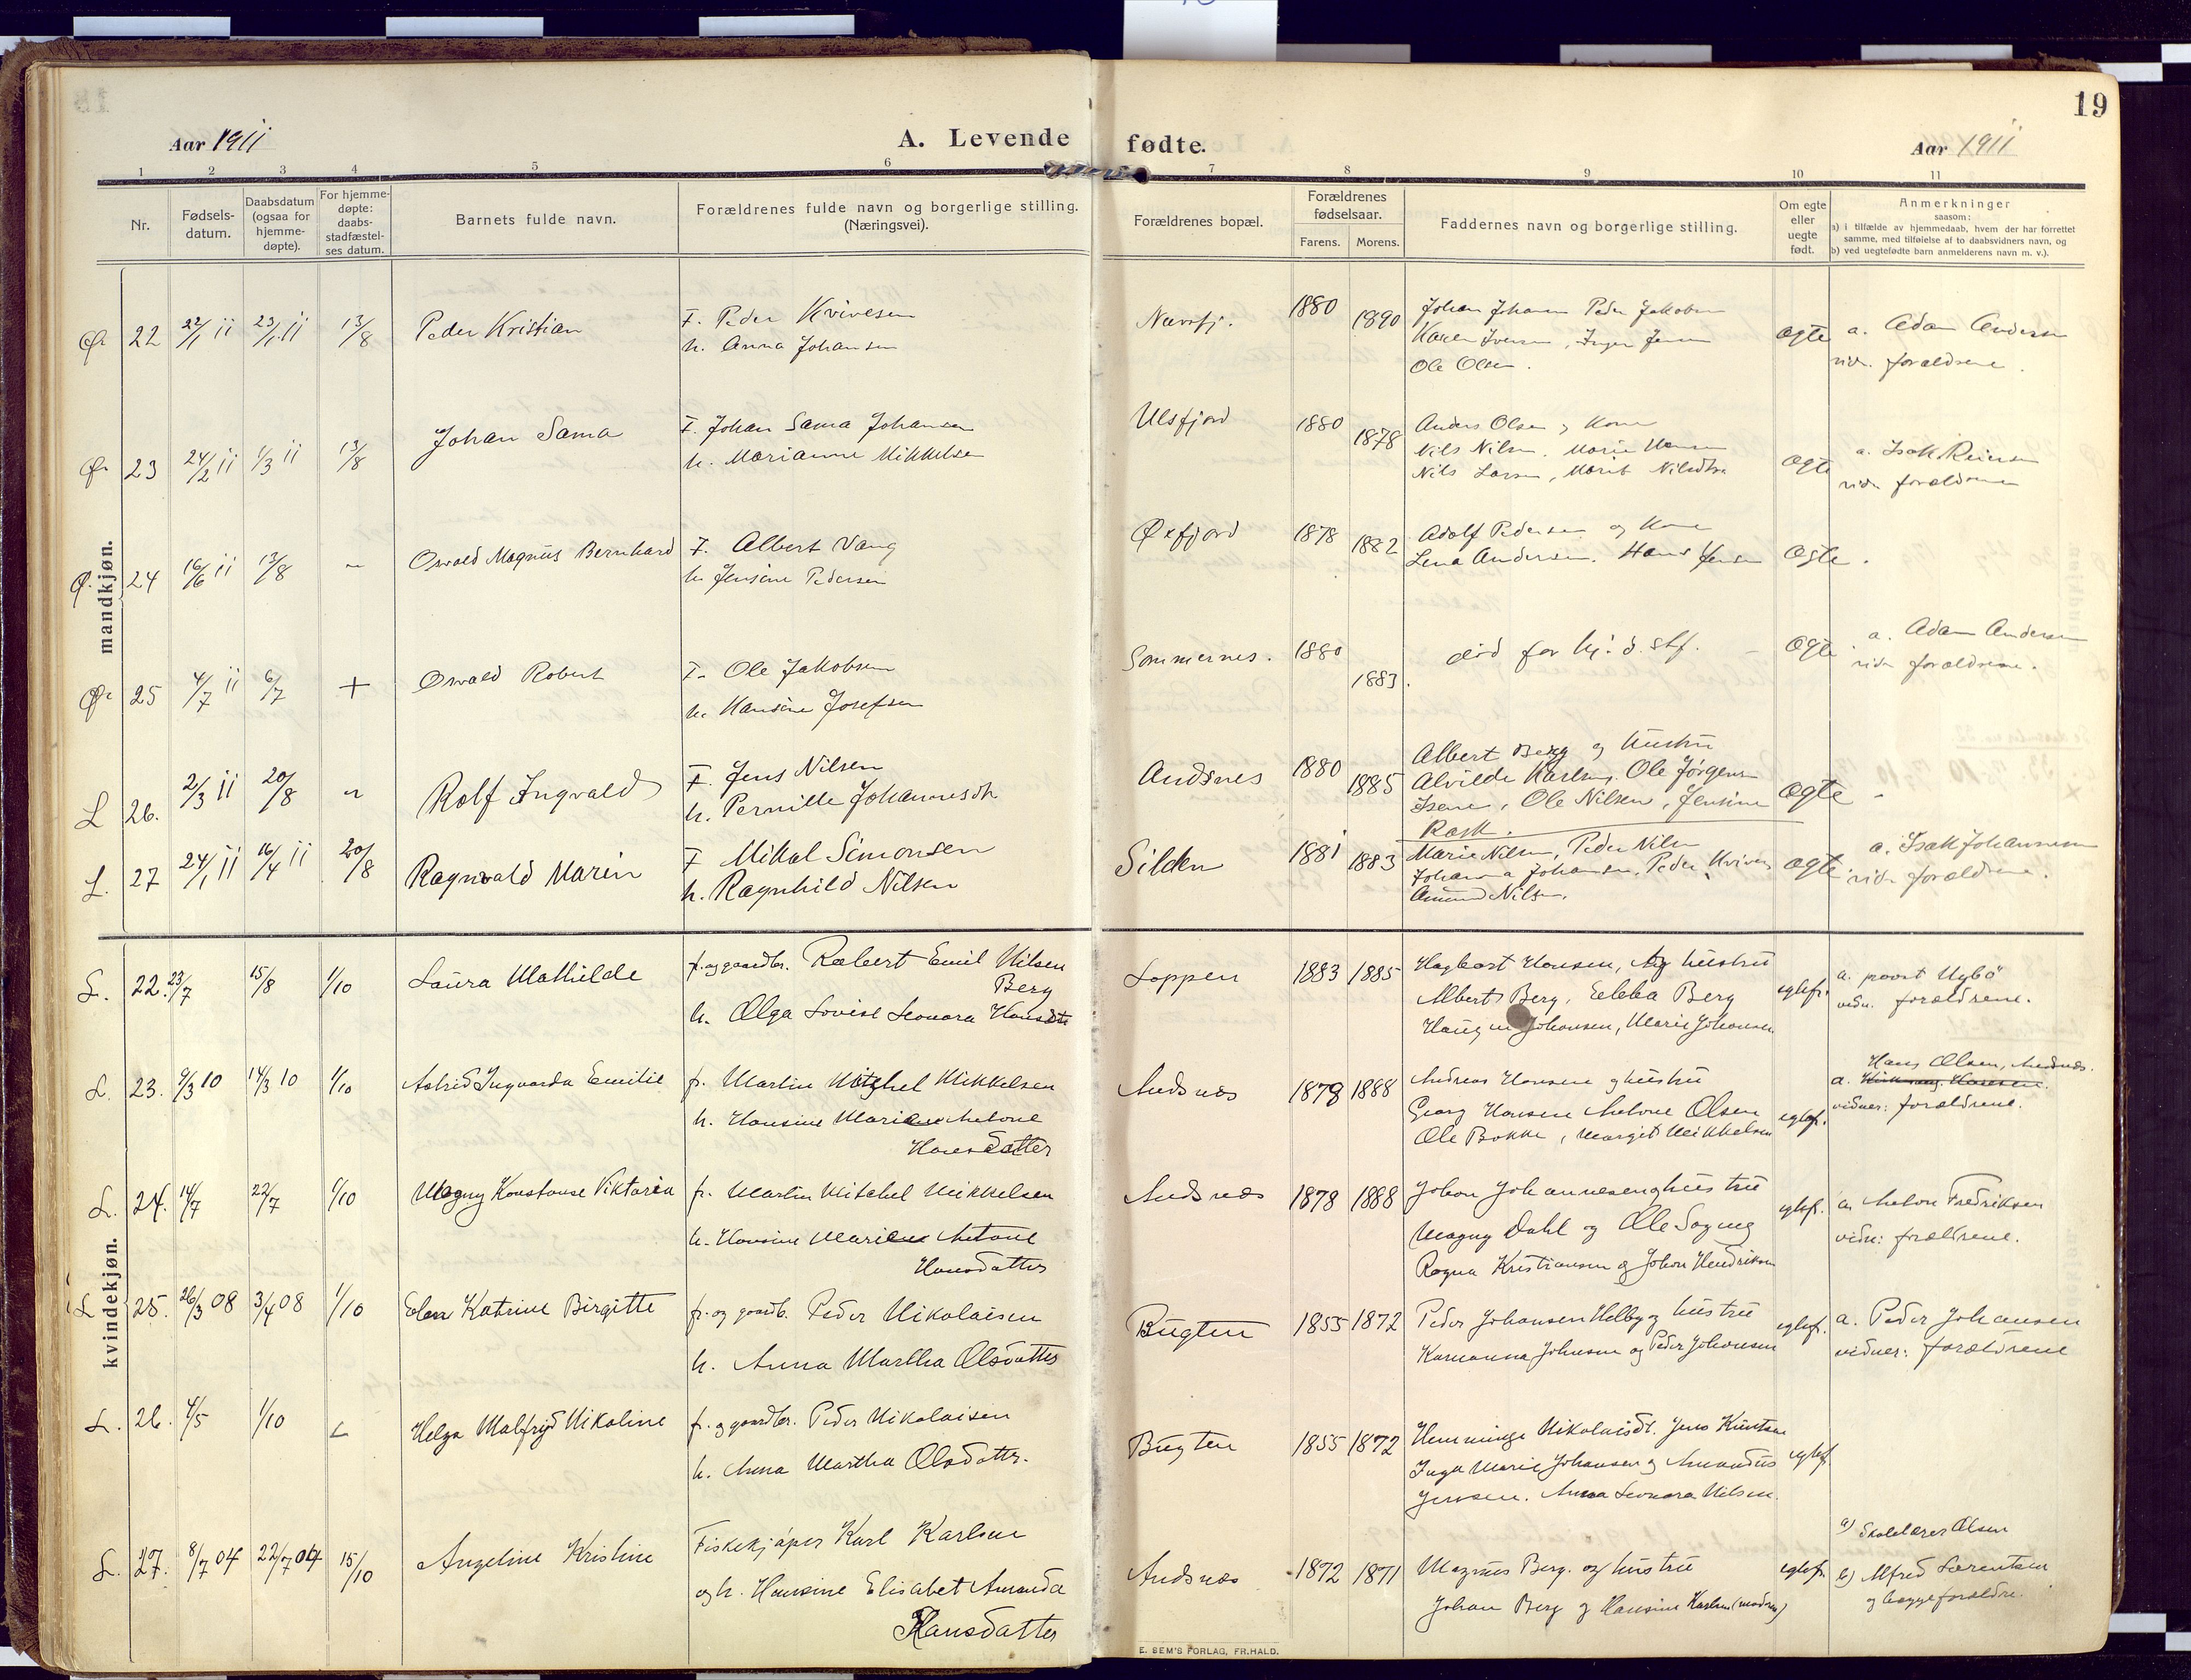 19
Aar 1911
A. Levende fødte.
Aar 1911
1 2 3 4 5 6 7 8 9 10 11
Nr.
Fødsels-
datum.
Daabsdatum
(ogsaa for
hjemme-
døpte).
For hjemme-
døpte:
daabs-
stadfæstel-
ses datum.
Barnets fulde navn.
Forældrenes fulde navn og borgerlige stilling.
(Næringsvei).
Forældrenes bopæl.
Forældrenes
fødselsaar.
Farens. Morens.
Faddernes navn og borgerlige stilling.
Om egte
eller
uegte
født.
Anmerkninger
saasom:
a) i tilfælde av hjemmedaab, hvem der har forrettet
samme, med tilføielse af to daabsvidners navn, og
b) ved uegtefødte barn anmelderens navn m. v.).
mandkjøn.
22 22/1 11 23/1 11 13/8 Peder Kristian
F. Peder Kvivesen
h. Anna Johansen
1880 1890
Ole Olsen.
egte
a. Adam Andersen
vidn. forældrene.
23 24/2 11 1/3 11 13/8 Johan Sama
F. Johan Sama Johansen
h. Marianne Mikkelsen
Ulsfjord 1880 1878
Anders Olsen og Kone
Nils Nilsen, Marie Hansen
Nils Larsen, Marit Nilsdtr
egte
a. Isak Reiersen
vidn forældrene
Ø. 24 16/6 11 13/8 - Osvald Magnus Bernhard
F. Albert Vang
h. Jensine Pedersen
Øxfjord 1878 1882
Adolf Pedersen og Kone
Lena Andersen. Hans Jensen
egte.
25 4/7 11 6/7 + Osvald Robert
F. Ole Jakobsen
h. Hansine Josefsen
Sommernes. 1880 1883.
død før hj. d. stf.
egte
a. Adam Andersen
vidn forældrene.
L 26. 2/3 11 20/8 Rolf Ingvald
F. Jens Nilsen
h. Pernille Johannesdtr
Andsnes 1880 1885
Albert Berg og hustru
Alvilde Karlsen, Ole Jørgen
Isene, Ole Nilsen, Jensine
Rask.
egte -
L. 27 24/1 11 16/4 11 20/8 Ragnvald Marin
F Mikal Simonsen
h. Ragnhild Nilsen
Silden 1881 1883
Marie Nilsen, Peder Nilsen
Johanna Johansen, Peder Kvivesen
Amund Nilsen.
egte
a. Isak Johannesen
vidn forældrene.
kvindekjøn.
L. 22. 23/7 15/8 1/10 Laura Mathilde
f. og gaardbr. Robert Emil Nilsen
Berg
h. Olga Lovise Leonora Hansdtr
Loppen 1883 1885
Hagbart Hansen, og hustru
Albert Berg, Ebba Berg
Johansen, Marie Johansen
egtef.
a. provst Nybø
vidn. forældrene.
L. 23. 9/3 10 14/3 10 1/10 Astrid Ingvarda Emilie
f. Martin Mitchel Mikkelsen
h. Hansine Mariane Antone
Hansdatter
Andsnes 1878 1888
Andreas Hansen og hustru
Georg Hansen Antone Olsen
Ole Bokke, Margit Mikkelsen
egtef.
Hans Olsen, Andsnæs.
a.
vidner: forældrene.
L. 24. 14/7 22/7 1/10 Magny Konstanse Viktoria
f. Martin Mitchel Mikkelsen
h. Hansine Mariane Antone
Hansdatter
Andsnæs 1878 1888
Johan Johannesen og hustru
Magny Dahl og Ole Sogng
Ragna Kristiansen og Johan Hendriksen
egtef.
a. Anton Fredriksen
vidn: forældrene.
L 25. 26/3 08 3/4 08 1/10 Elen Katrine Birgitte
f. og gaardb. Peder Nikolaisen
h. Anna Martha Olsdatter
Bugten 1855 1872
Peder Johansen Helby og hustru
Karnanna Johnsen og Peder Johansen
egtef.
a. Peder Johansen
vidner: forældrene
L. 26. 4/5 1/10 Helga Malfryd Nikoline
f. og gaardbr. Peder Nikolaisen
h. Anna Martha Olsdattr.
Bugten 1855 1872
Hemminge Nikolaisdt. Jens Knutsen
Inga Marie Johansen og Amandus
Jensen. Anna Leonora Nilsen.
egtef.
L. 27. 8/7 04 22/7 04 15/10 Angeline Kristine
Fiskekjøper Karl Karlsen
og h. Hansine Elisabet Amanda
Hansdatter
Andsnæs 1872 1871
Magnus Berg. og hustru
Johan Berg og Hansine Karlsen (modren)
egtef.
a) Skolelærer Olsen
b) Alfred Lorentsen
og begge forældre.
E. SEM'S FORLAG, FR.HALD.